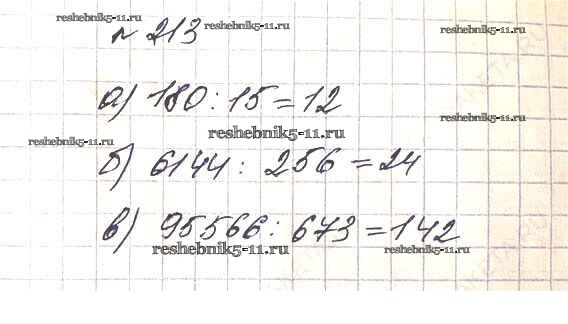 reshebnik5-11.ru reshebnik5-11.ru reshebnik5-11.ru
№ 213
а) 180 : 15 = 12
reshebnik5-11.ru
reshebnik5-11.ru
reshebnik5-11.ru
б) 6144 : 256 = 24
в) 95566 : 673 = 142
reshebnik5-11.ru reshebnik5-11.ru